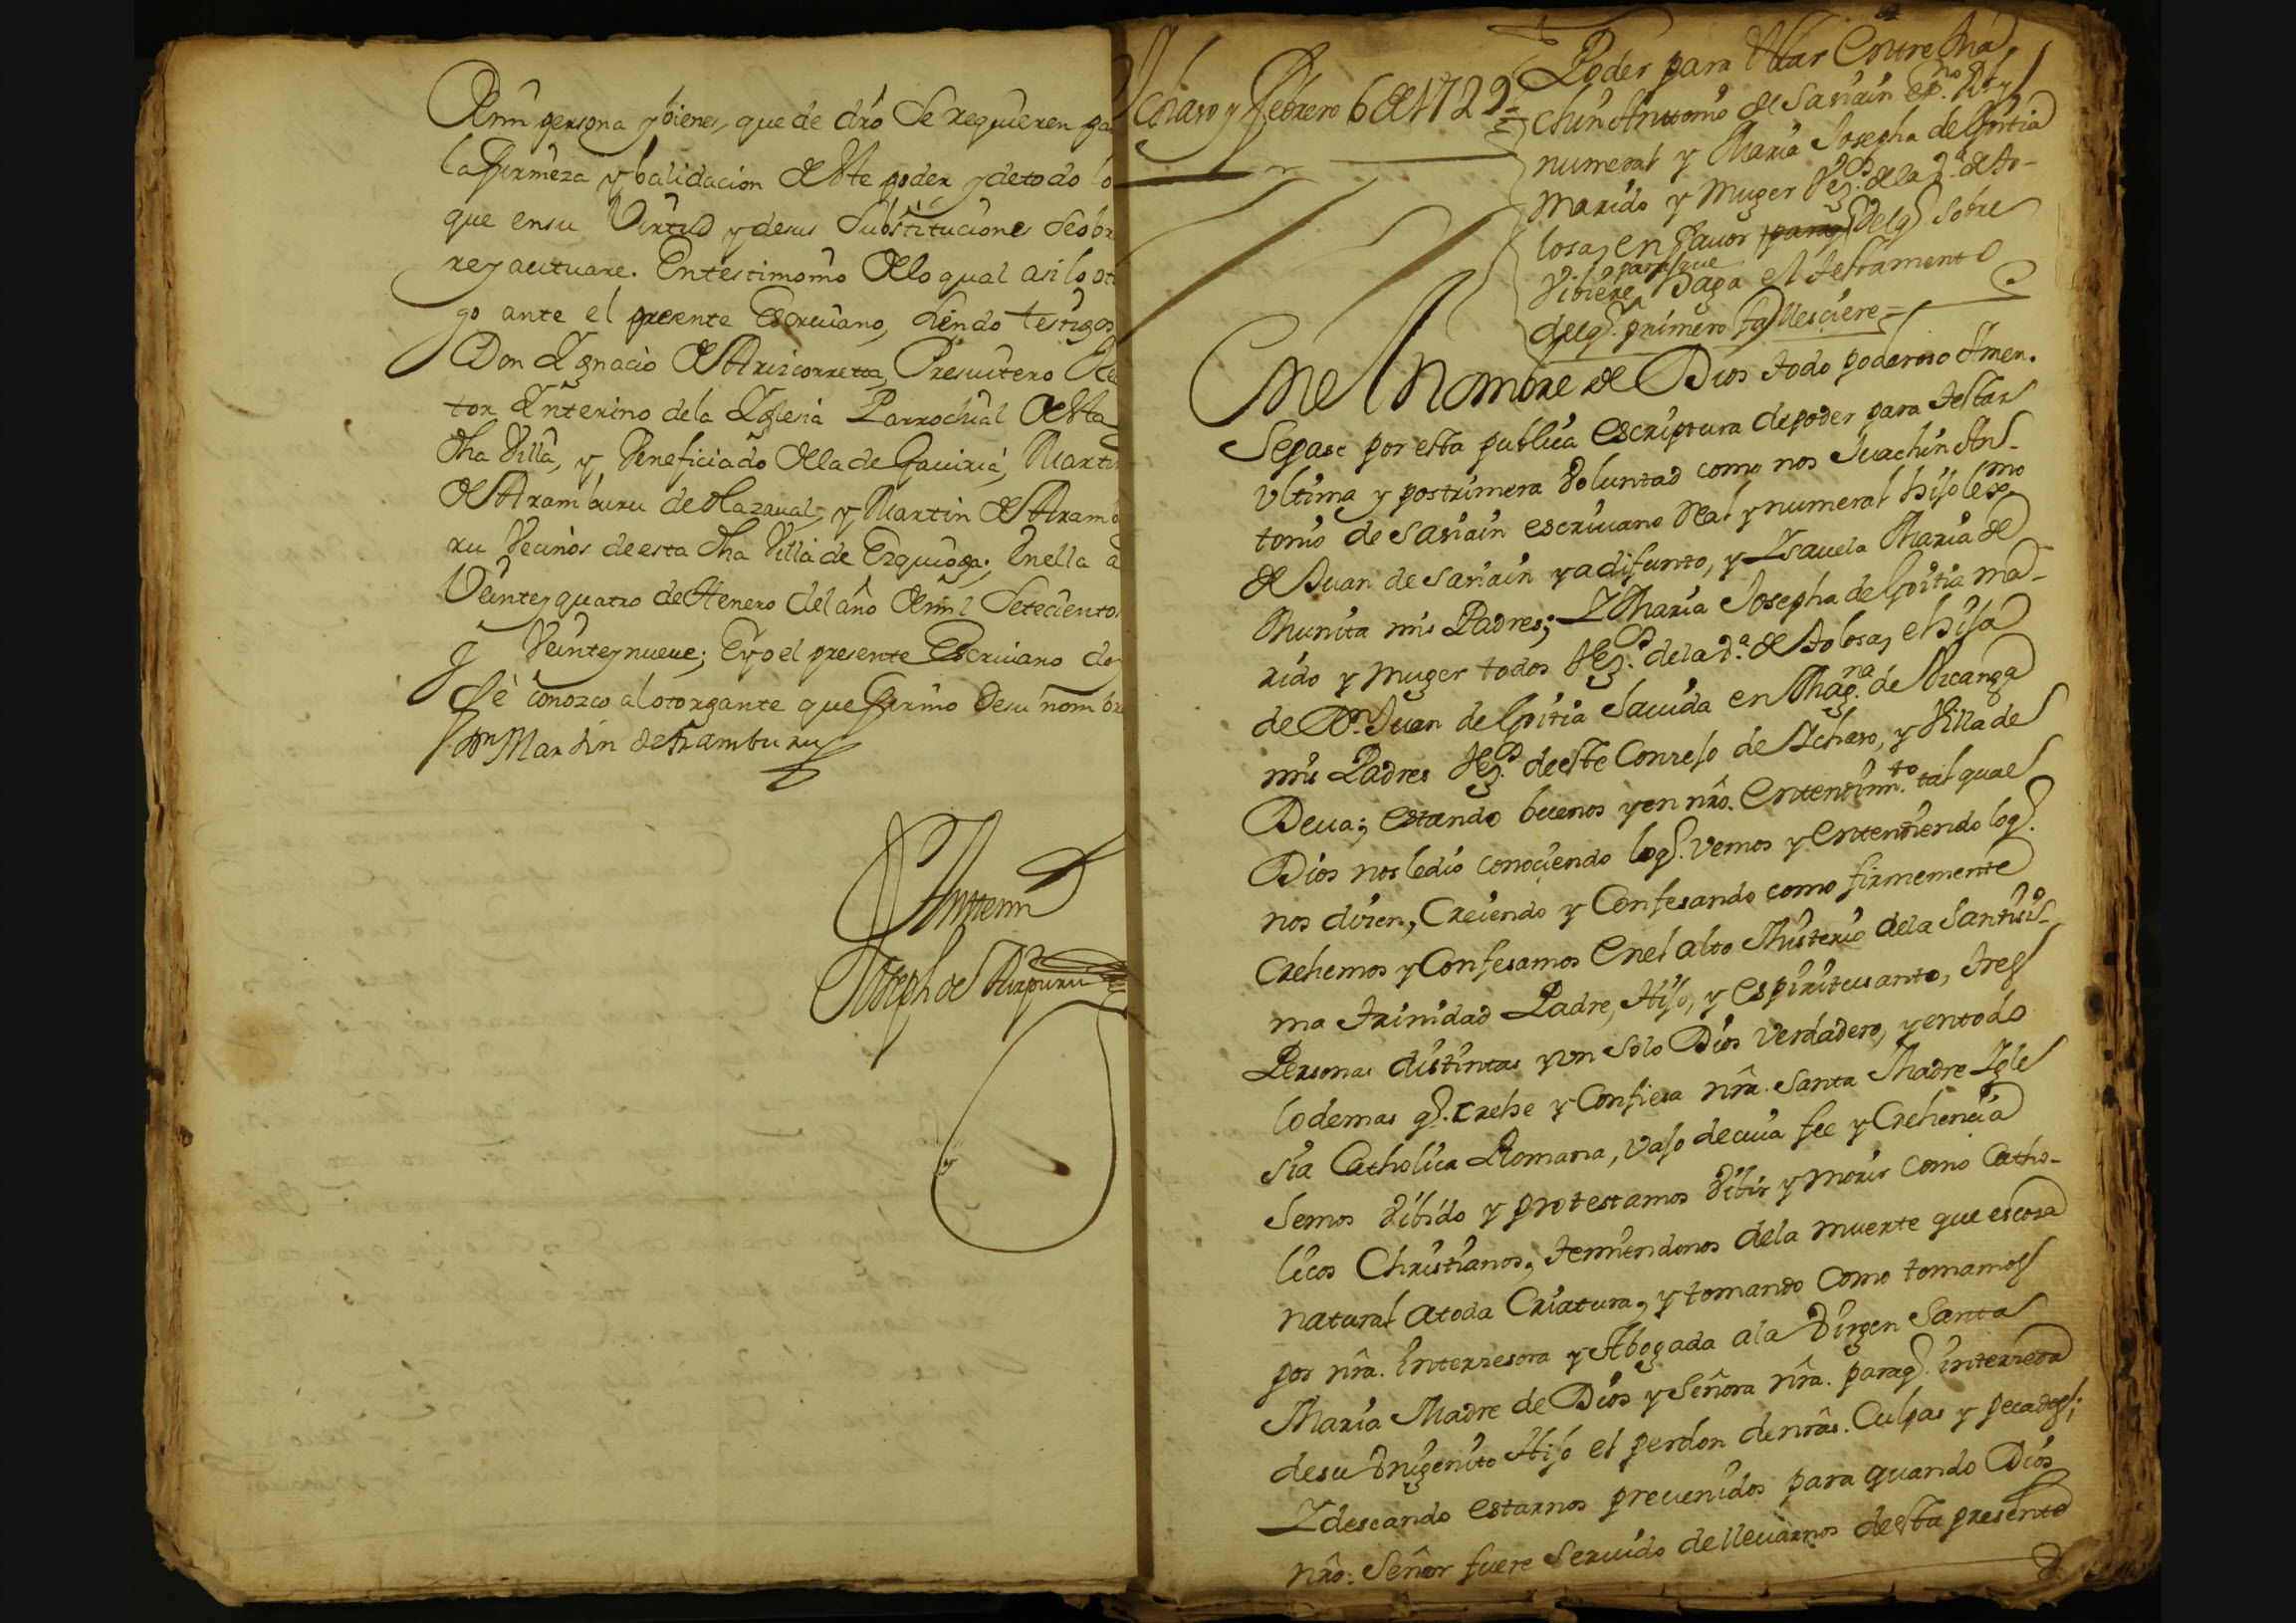 de mi persona y bienes, que de dro Se requieren pa
la firmeza y balidacion de Este poder y detodo lo
que ensu Virtud y desus Substituciones Seobra
re y actuare. Entestimonio delo qual asi lo ot
go ante el presente Escriuano, siendo testigos
Don Ygnacio de Arizcorreta, Presuitero Rec
tor Ynterino dela Yglesia Parrochial de Sta
dha Villa, y Veneficiado de la de Gauiria, Martin
de Aramburu de Olazaual, y Martin de Arambu
ru Vecinos de esta dha Villa de Ezquioga; Enella a
Veinte y quatro de Henero del año de mil Setecientos
y Veinte y nueue; E yo el presente Escriuano doy
feè conozco al otorgante que firmo desu nombre
Dn Martin de Aramburu
Antemi
Joseph de Aizpuru
Ychaso y Febrero 6 de 1729=
Poder para testar Entre Jua
chin Antonio de Sasiain esno. Rl. y
numeral y Maria Josepha de Goitia
marido y muger vezos. de la va. de to-
losa, en fauor paraq delq Sobre
vibiere para que haga el testamento
delq. primero fallesciere=
En el Nombre de Dios todo poderoso Amen.
Sepase por esta publica escriptura de poder para testar
vltima y postrimera voluntad como nos Juachin An-
tonio de Sasiain escriuano Real y numeral hijo lexmo
de Juan de Sasiain ya difunto, y Ysauela Maria de
Munita mis Padres; Y Maria Josepha de Goitia ma-
rido y muger todos Vezos. dela va. de tolosa, e hija
de Dn. Juan de Goitia hauida en Magna. de Vicanga
mis Padres Vezos. deeste Conzejo de Ychaso, y Villa de
Deua; estando buenos y en nro. entendimto. tal qual
Dios nos ledio conociendo loq. vemos y entendiendo loq.
nos dizen, Creiendo y Confesando como firmemente
Crehemos y Confesamos Enel alto Misterio dela Santisi-
ma trinidad Padre, Hijo, y espiritusanto, tres
Personas distintas y vn solo Dios verdadero, y entodo
lodemas q. crehe y Confiesa nra. Santa Madre Ygle
sia Catholica Romana, vajo decuia fee y Crehencia
hemos vibido y protestamos vibir y morir como Catho-
licos Christianos, temiendonos dela muerte que es cosa
natural a toda Criatura, y tomando Como tomamos
por nra. Interzesora y Abogada ala Virgen Santa
Maria Madre de Dios y Señora nra. paraq. interzeda
desu Vnigenito Hijo el perdon denras. Culpas y pecados;
Y deseando estarnos preuenidos para quando Dios
nro. Señor fuere Seruido dellevarnos deesta presente